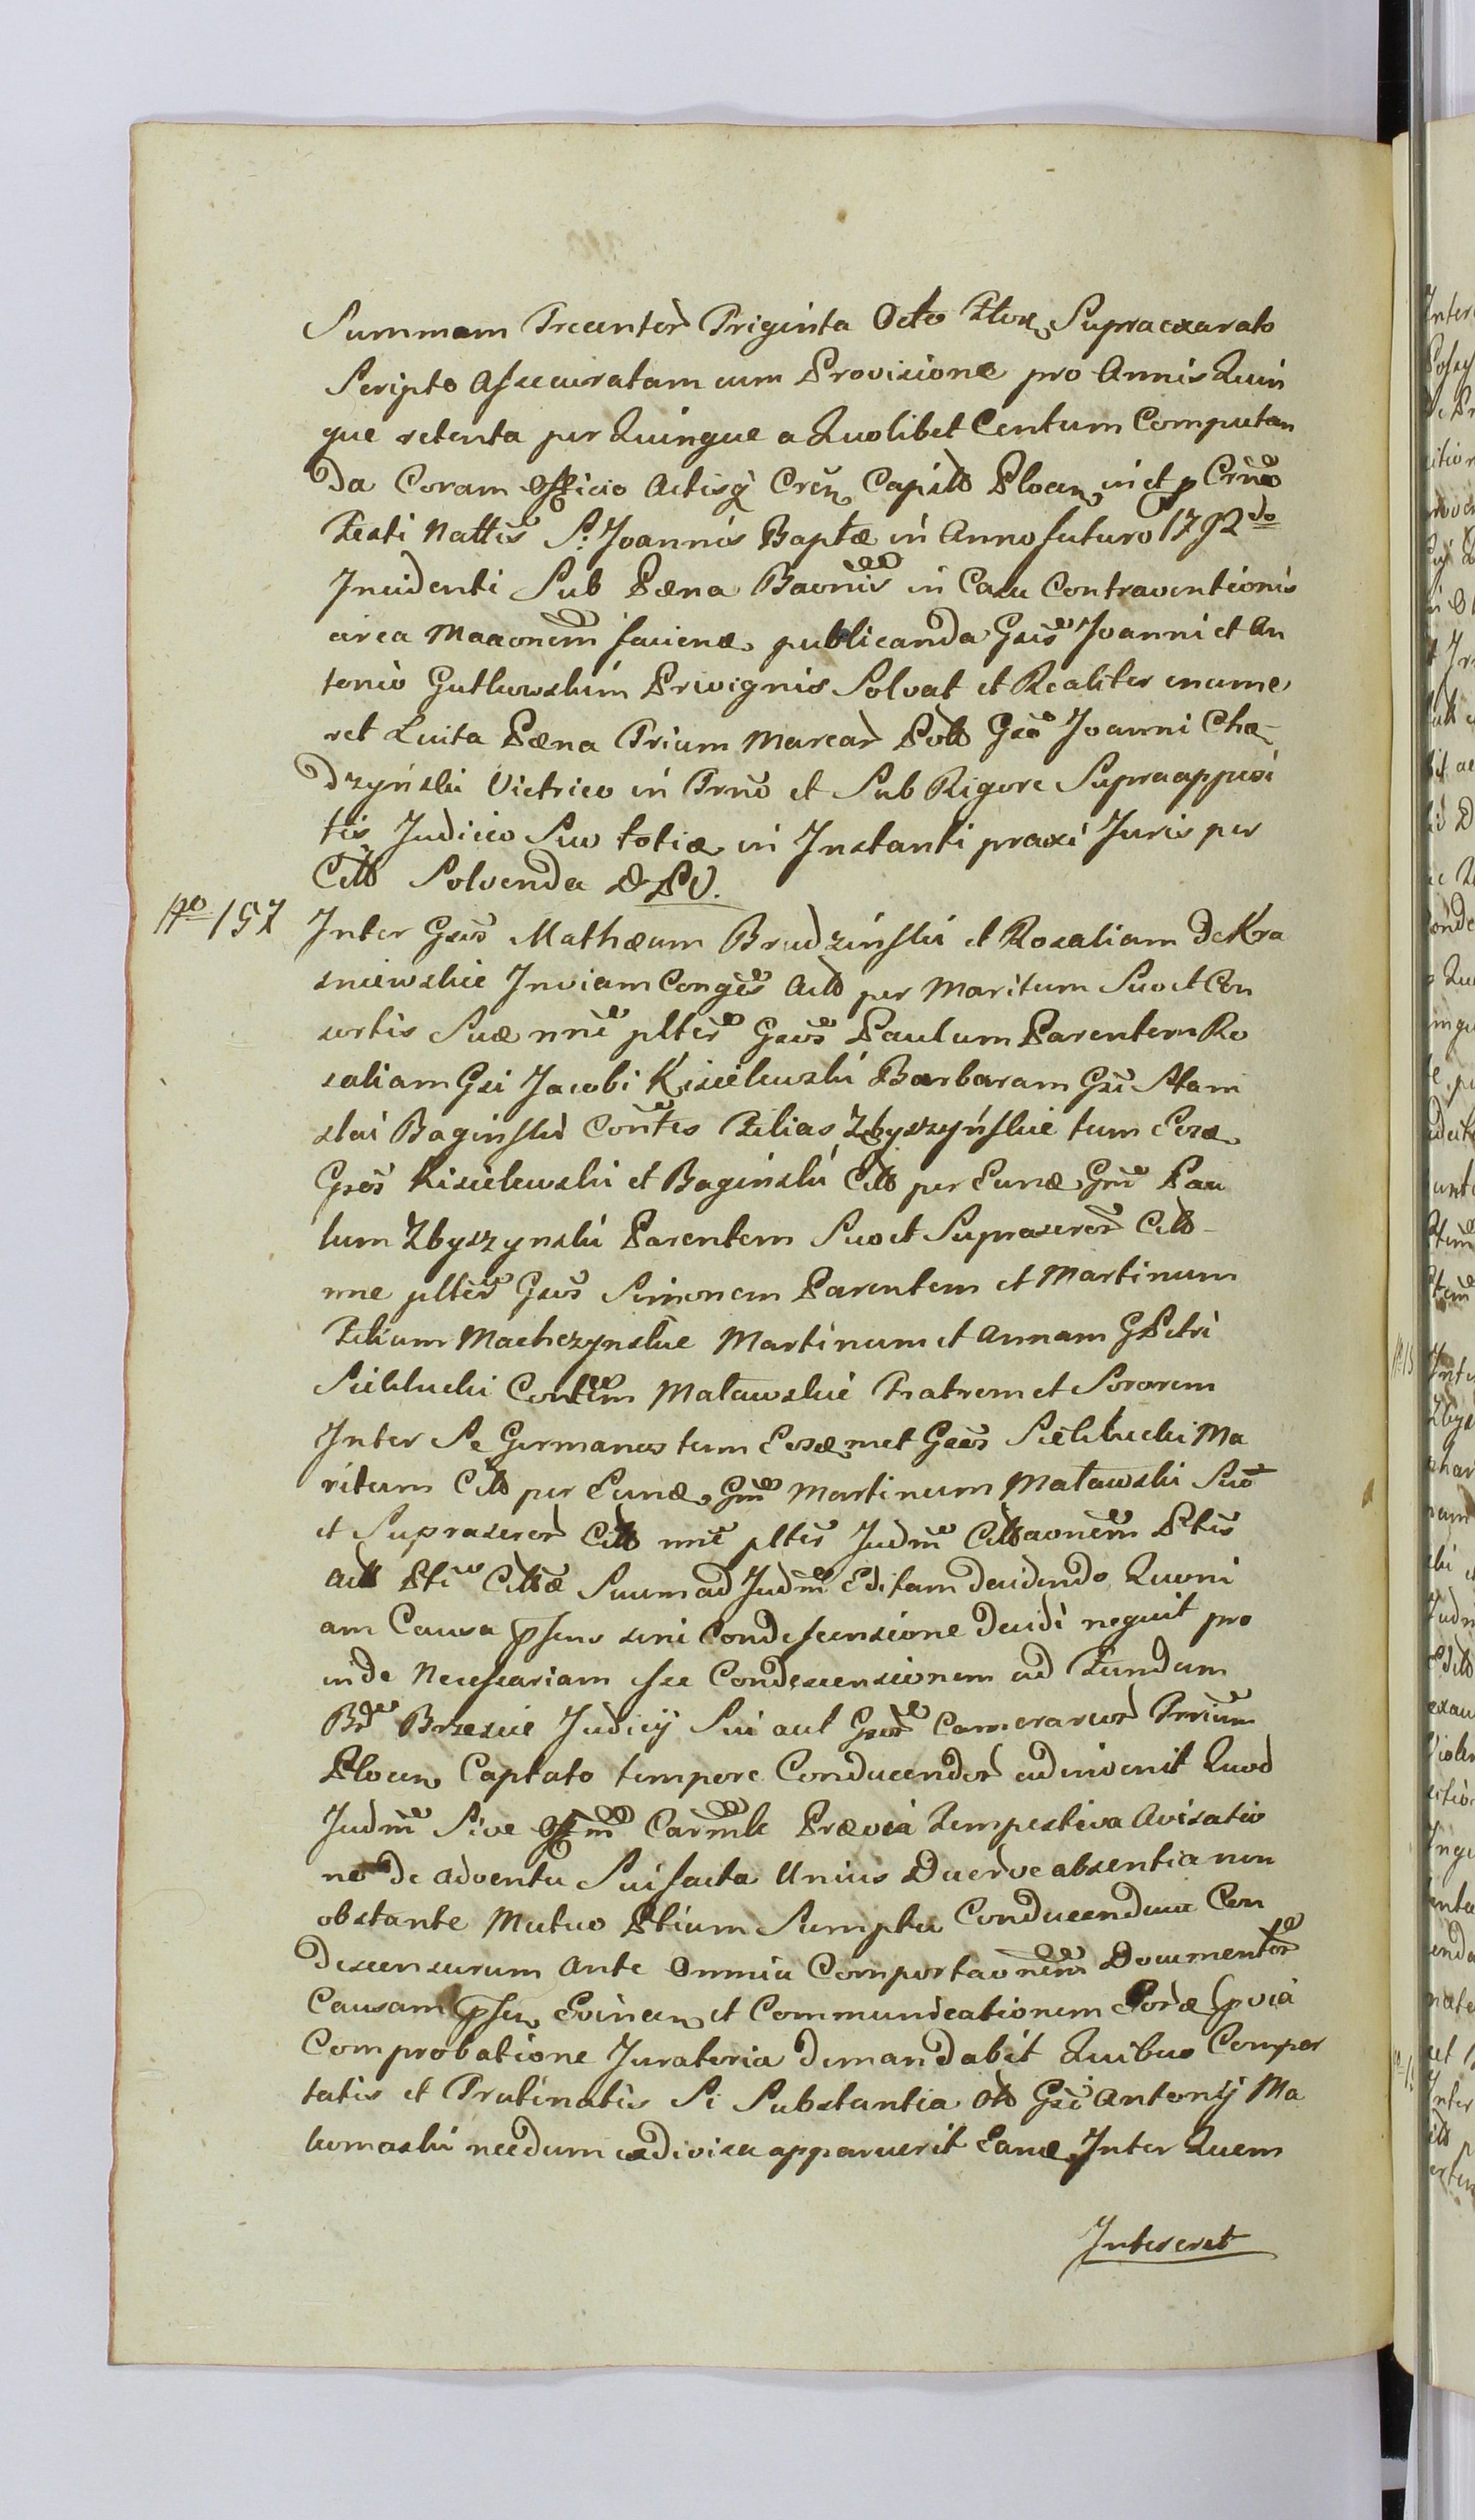 Summam Trecentor Triginta Octo Flor Supraexarato
Scripto Assecuratam cum Provisione pro Annis Quin
que retenta per Quinque a Quolibet Centum Computan
da Coram Officio Actisq Cren Capitt Plocen in et p Crno
Festi Nattis S. Joannis Baptæ in Anno futuro 1792do
Incidenti Sub Pæna Baonis in Casu Contraventionis
circa Maaonem faciend publicanda Gsis Joanni et An
tonio Gutkowskim Privignis Solvat et Realiter enume
ret Luita Pæna Trium Marcar Poll Gso Joanni Chą
dzyński Vietrico in Trno et Sub Rigore Supraapposi
tis Judicio Suo toties in Instanti praxi Juris per
Citt Solvenda D P V.
Nro 157 Inter Gsos Mathæum Brudziński et Rosaliam de Kra
sniewskie Inviam Conges Actt per Maritum Suo et Con
sortis Suæ nne pltes Gsos Paulum Parentem Ro
saliam Gsi Jacobi Kisielewski Barbaram Gsi Stani
slai Baginski Contes Filias Zbyszyńskie tum Eosd
Gsos Kisielewski et Baginski Citt per Eund Gsm Pau
lum Zbyszynski Parentem Suo et Suprascror Citt
nne pltes Gsos Simonem Parentem et Martinum
Filium Machczynskie Martinum et Annam G Petri
Sieklucki Contem Maławskie Fratrem et Sororem
Inter Se Germanos tum Eosdmet Gsos Sieklucki Ma
ritum Citt per Eund Gsm Martinum Maławski Suo
et Suprascror Citt nne pltes Judm Cittaonem Ptis
Actt Pti Cittæ Suum ad Judm Editam decidendo Quoni
am Causa psens sini Condescensione decidi nequit pro
inde Necessariam esse Condescensionem ad Fundum
Br Brzescie Judicij Sui aut Gsor Camerarior Trrium
Plocen Captato tempore Conducendor adinvenit Quod
Judm Sive Offm Carmle Prævia tempestiva Avisatio
ne de adventu Sui facta Unius Duorve absentia non
obstante Mutuo Ptium Sumptu Conducendum Con
descensurum Ante Omnia Comportaonem Documentor
Causam psen Evincen et Communicationem Eord pvia
Comprobatione Juratoria demandabit Quibus Compor
tatis et Trutinatis Si Substantia Ott Gsi Antonij Ma
komaski needum exdivisa apparuerit Eand Inter Quem
Intereret